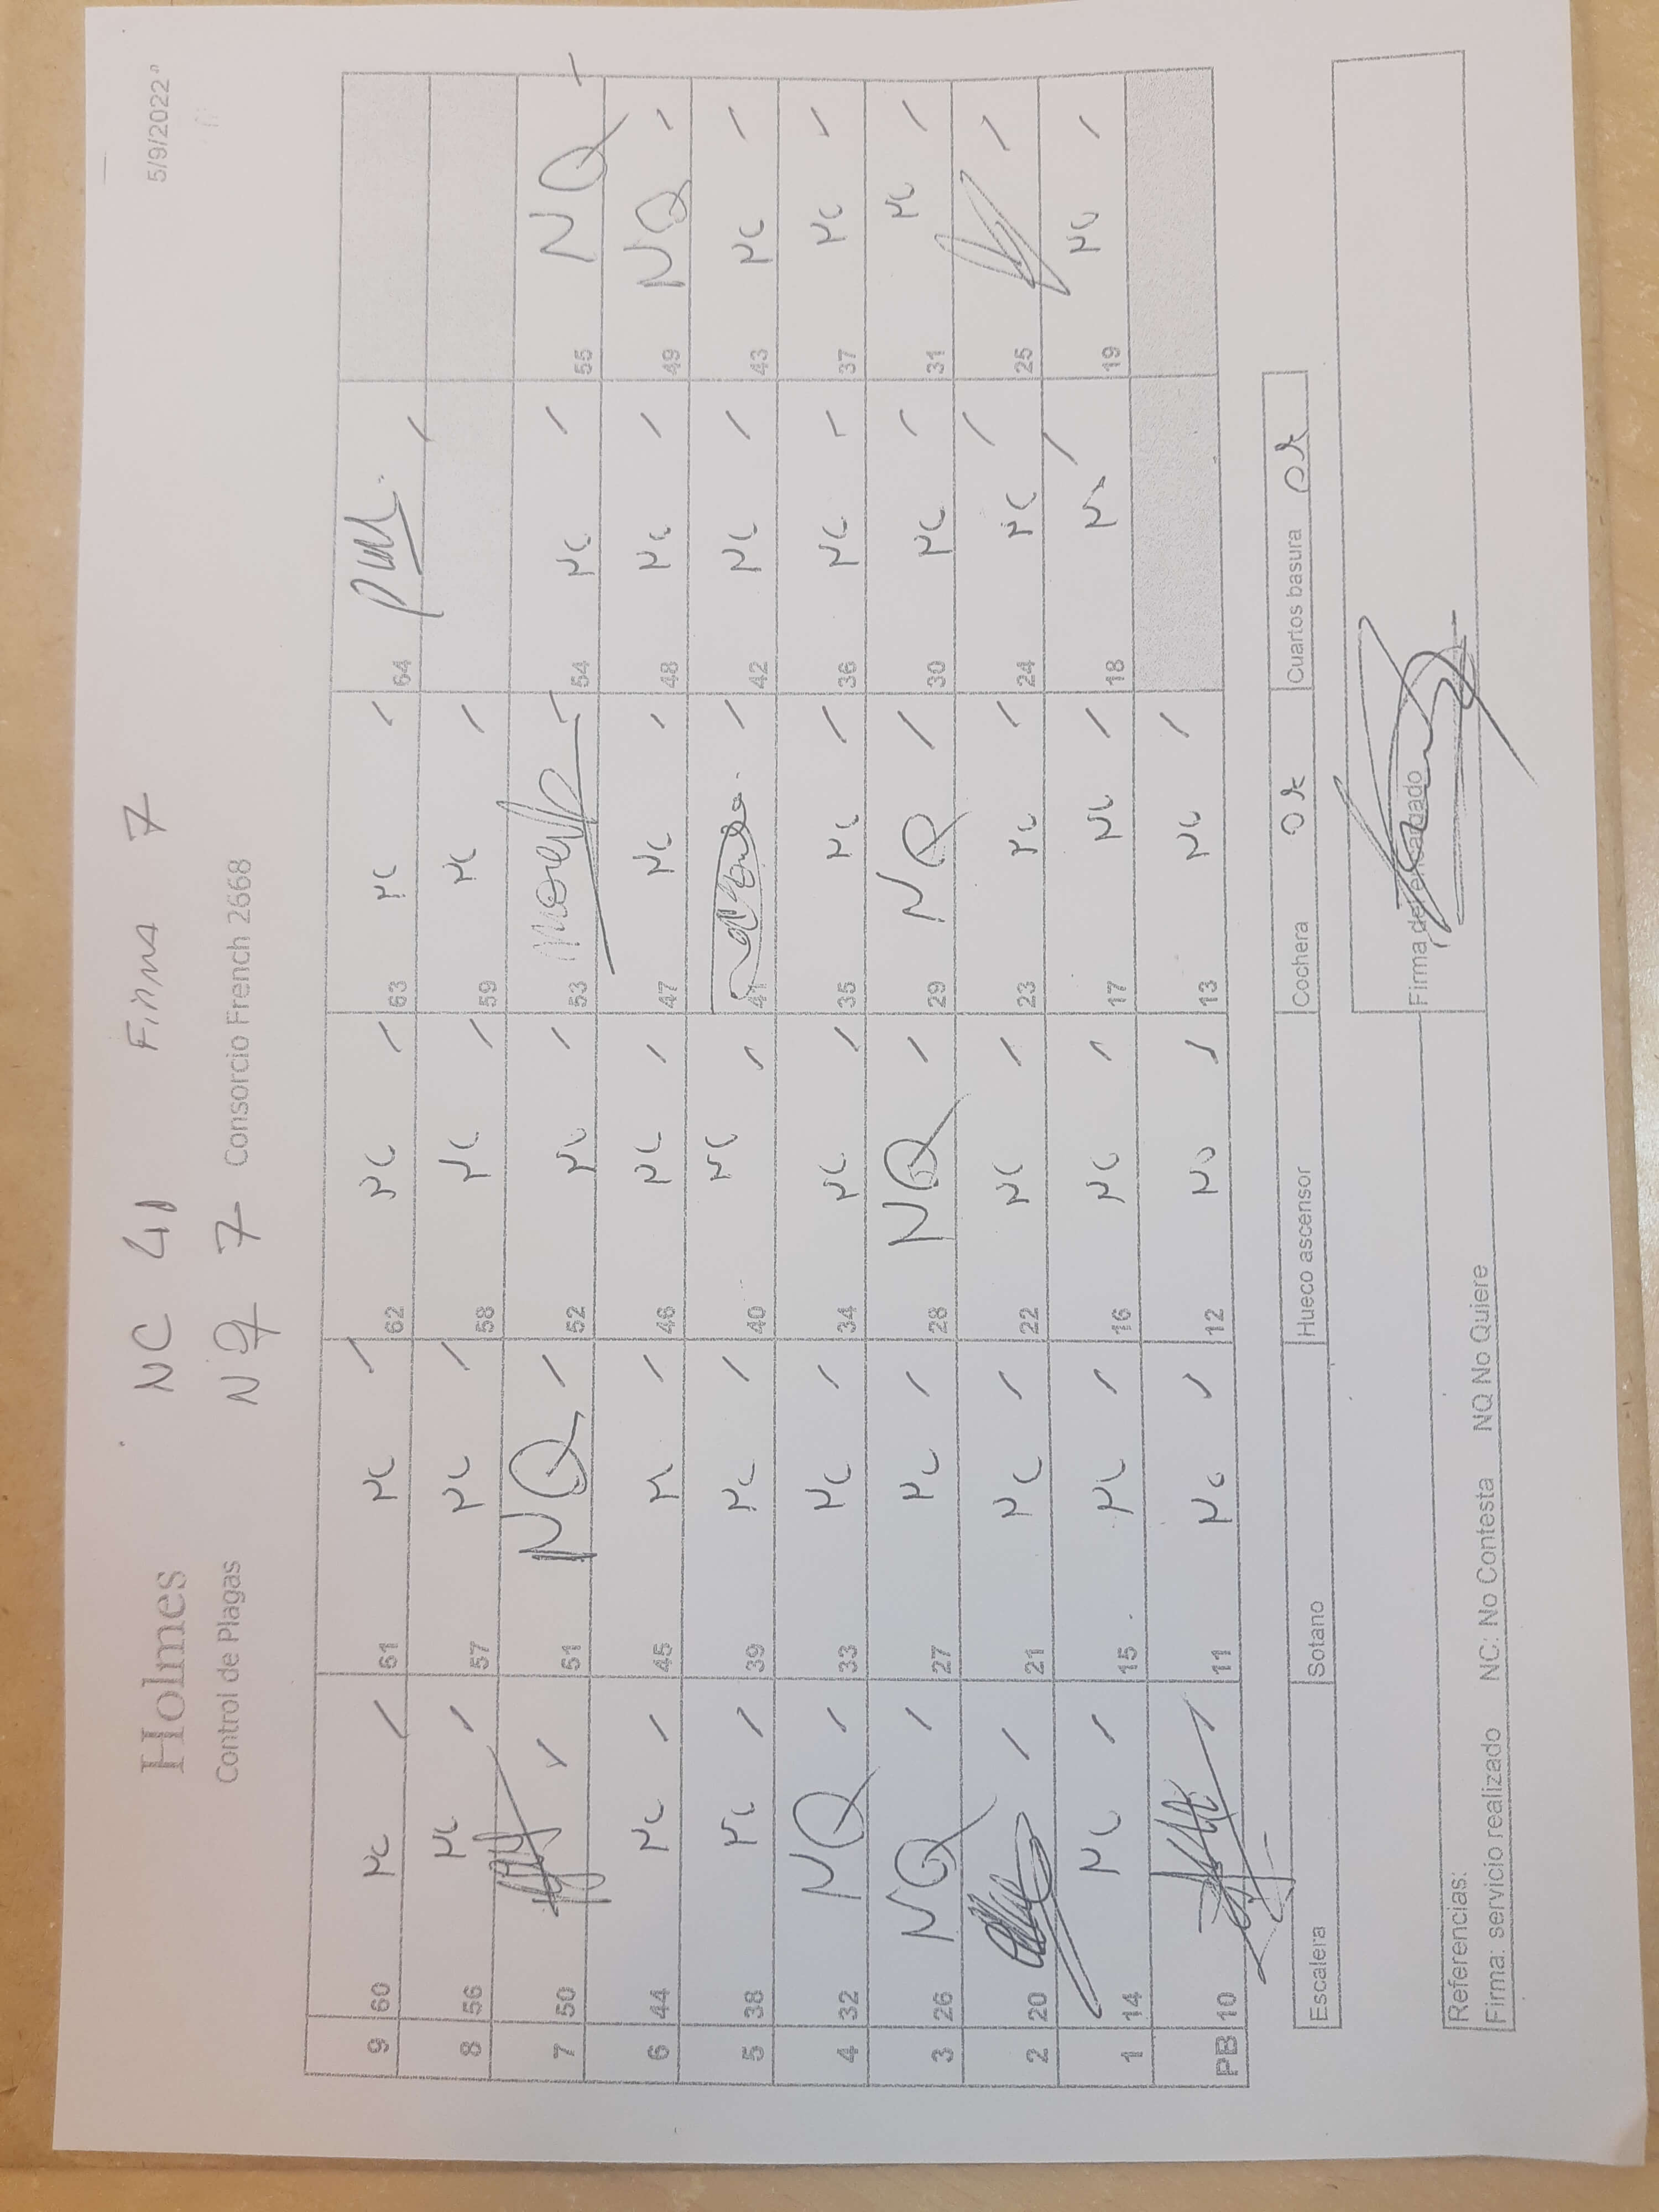 5/9/2022
NC 41 Firma 7
Holmes
NQ 7
Control de Plagas Consorcio French 2668
9 60 NC 61 NC 62 NC 63 NC 64
8 56 NC 57 NC 58 NC 59 NC
7 50 51 NQ 52 NC 53 54 NC 55 NQ
6 44 NC 45 NC 46 NC 47 NC 48 NC 49 NQ
5 38 NC 39 NC 40 NC 41 42 NC 43 NC
4 32 NQ 33 NC 34 NC 35 NC 36 NC 37 NC
3 26 NQ 27 NC 28 NQ 29 NQ 30 NC 31 NC
2 20 21 NC 22 NC 23 NC 24 NC 25
1 14 NC 15 NC 16 NC 17 NC 18 NC 19 NC
PB 10 11 NC 12 NC 13 NC
Escalera Sotano Hueco ascensor Cochera Ok Cuartos basura Ok
Firma del encargado
Referencias:
Firma: servicio realizado NC: No Contesta NQ No Quiere